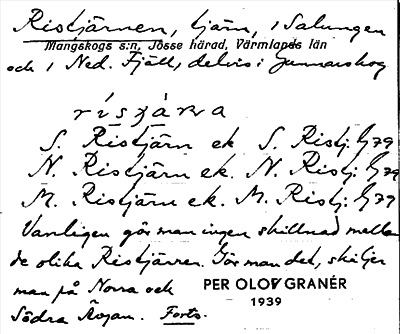 Ristjärnen, tjärn, i Salungen
Mangskogs s:n, Jösse härad, Värmlands län
och i Ned. Fjäll, delvis i Gunnarskog
S. Ristjärn ek S. Ristj. G79
N. Ristjärn ek. N. Ristj. G79
M. Ristjärn ek. M. Ristj: G79
Vanligen gör man ingen skillnad mellan
de olika Ristjärnen. Gör man det, skiljer
man på Norra och
PER OLOV GRANÉR
1939
Södra Forts.